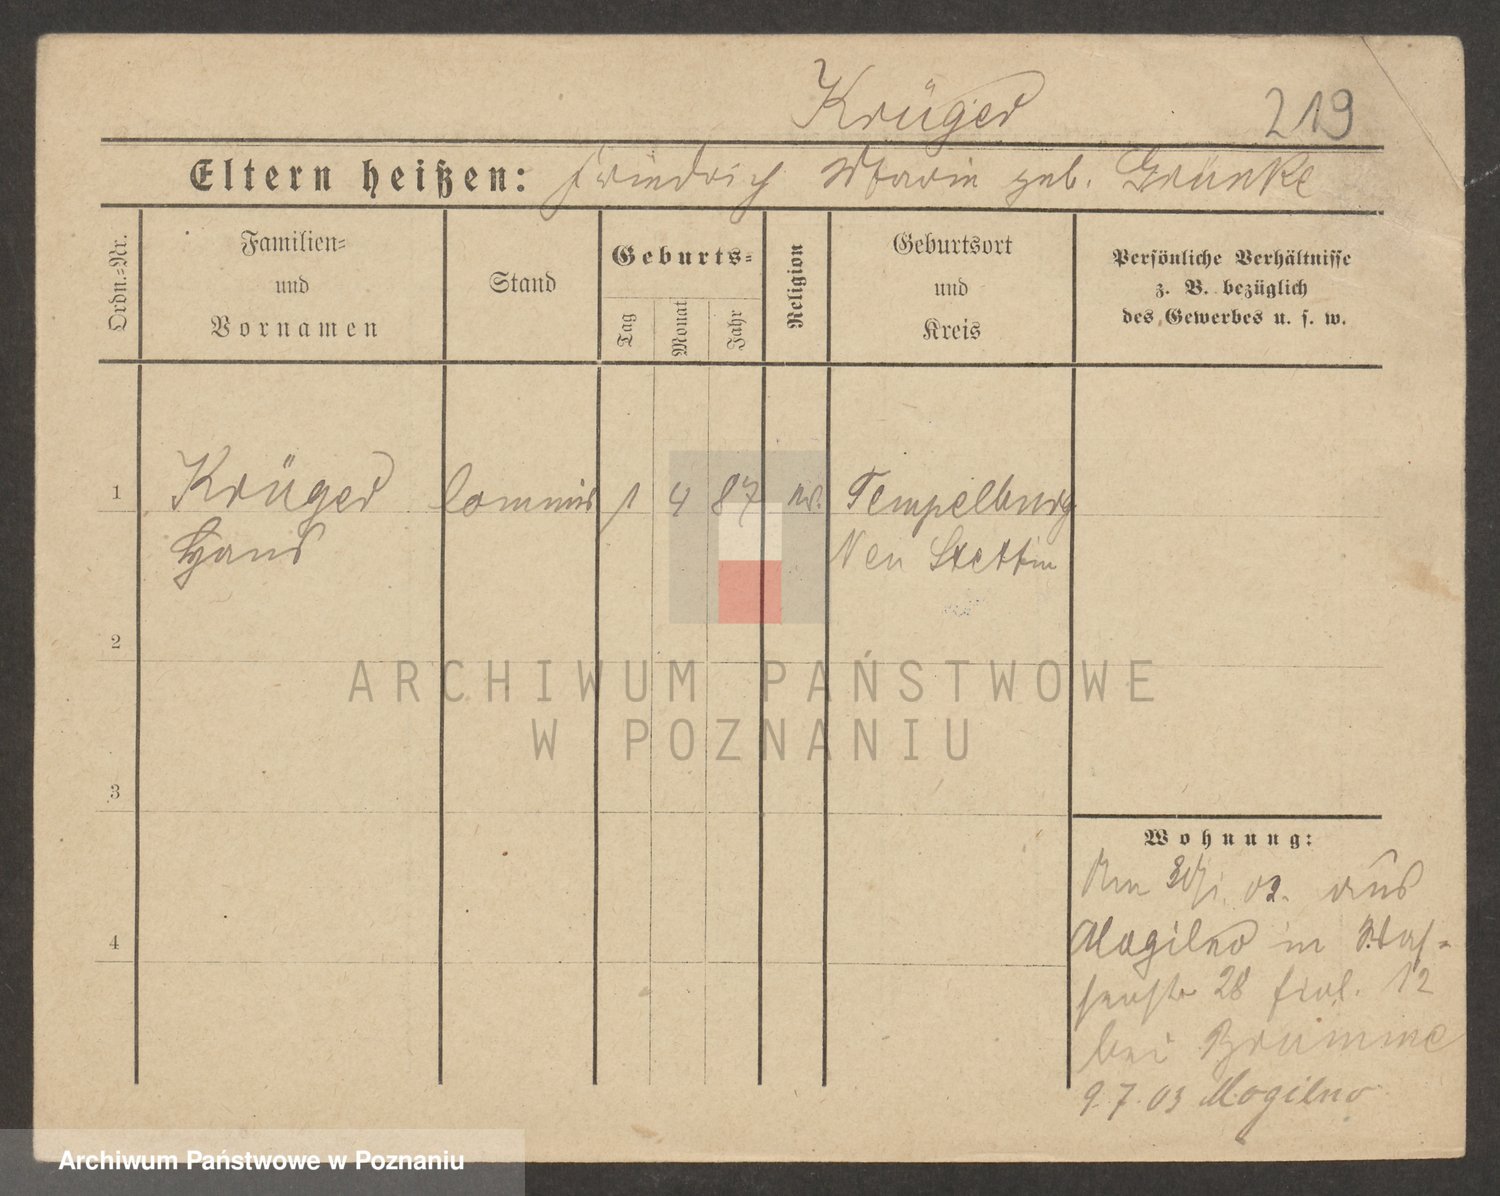 Krüger
219
Eltern heißen: Friedrich Marie geb. Grünke
Ordn.=Nr.
Familien=
und
Vornamen
Stand
Geburts=
Tag
Monat
Jahr
Religion
Geburtsort
und
Kreis
Persönliche Verhältnisse
z. B. bezüglich
des Gewerbes u. s. w.
1
Krüger
Hans
Commis
1
4
87
ev.
Tempelburg
Neu Stettin
2
3
4
Wohnung:
aus
Mogilno in
28 12
bei Brumme
9.7.03 Mogilno
ARCHIWUM PAŃSTWOWE
W POZNANIU
Archiwum Państwowe w Poznaniu